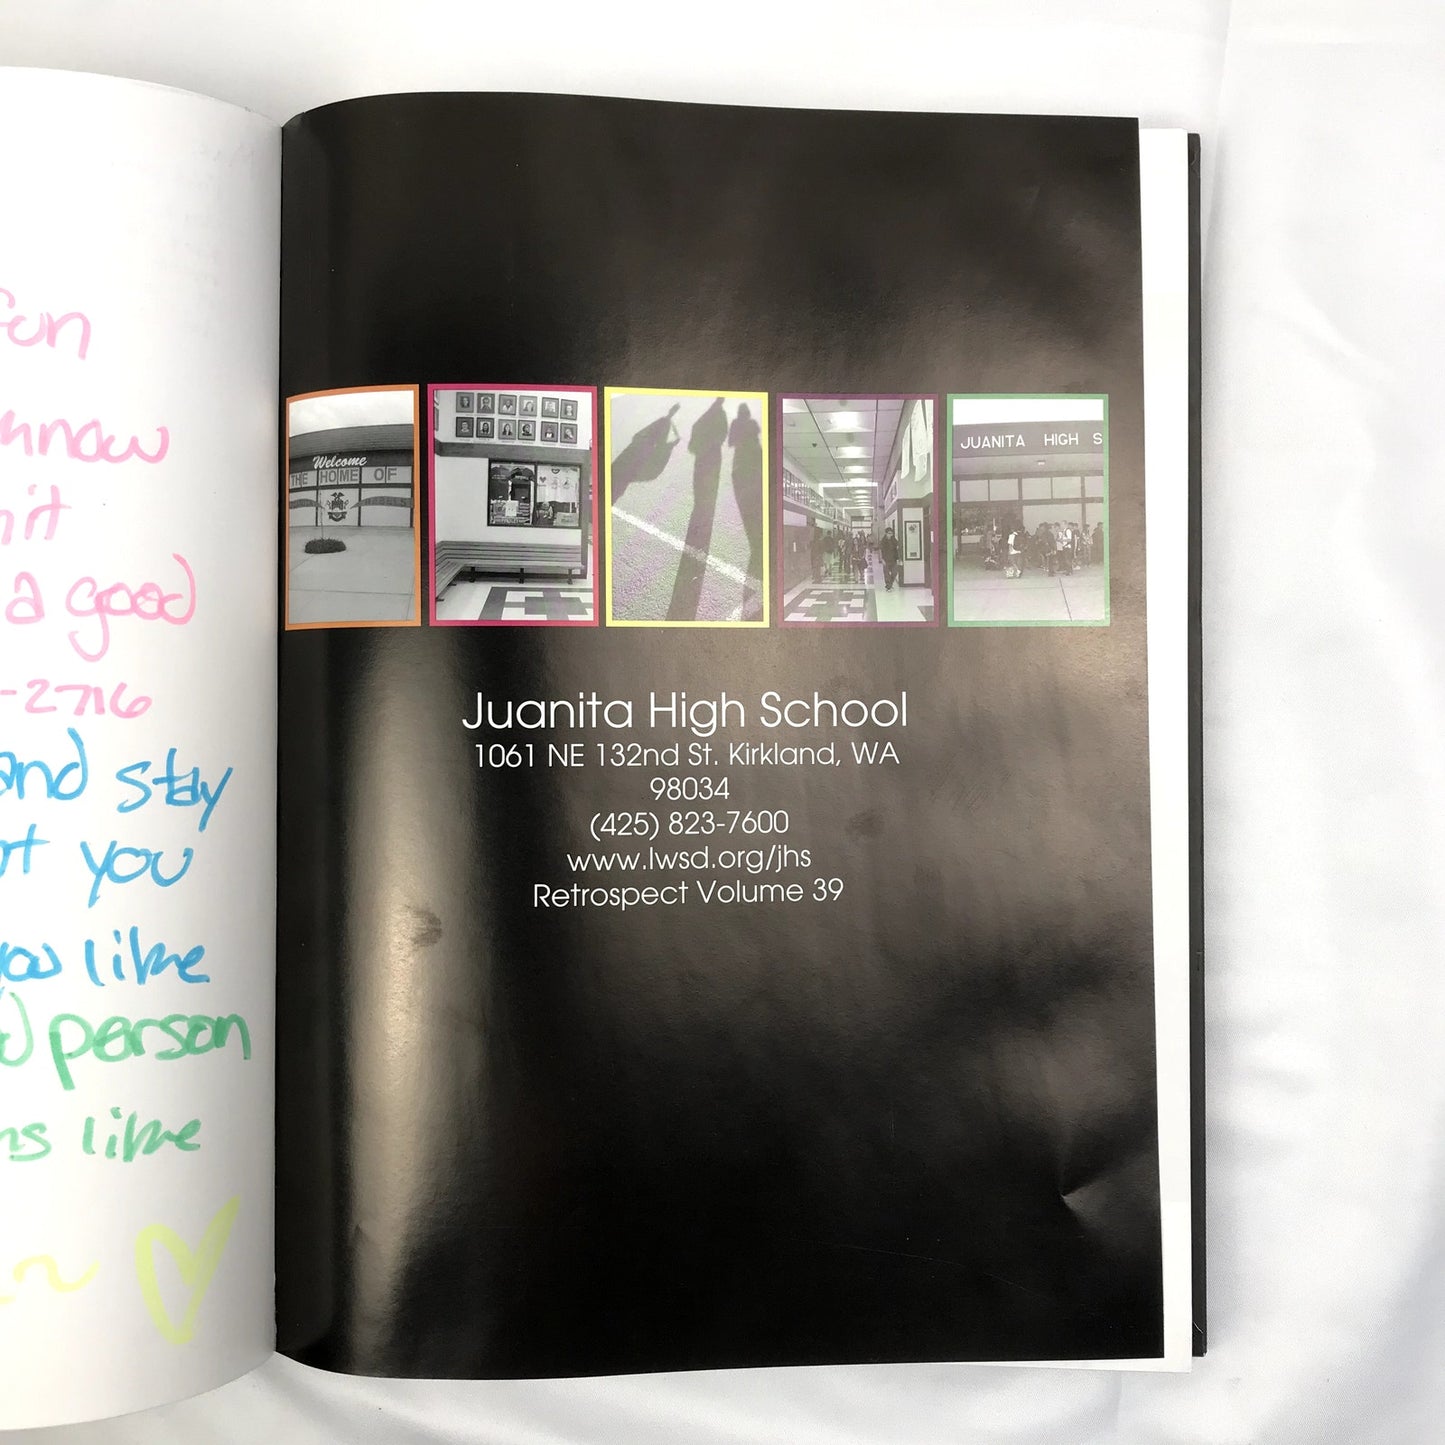 fun
know
a good
-2716
and stay
you
you like
person
like
Welcome
THE HOME OF
JUANITA HIGH S
Juanita High School
1061 NE 132nd St. Kirkland, WA
98034
(425) 823-7600
www.lwsd.org/jhs
Retrospect Volume 39